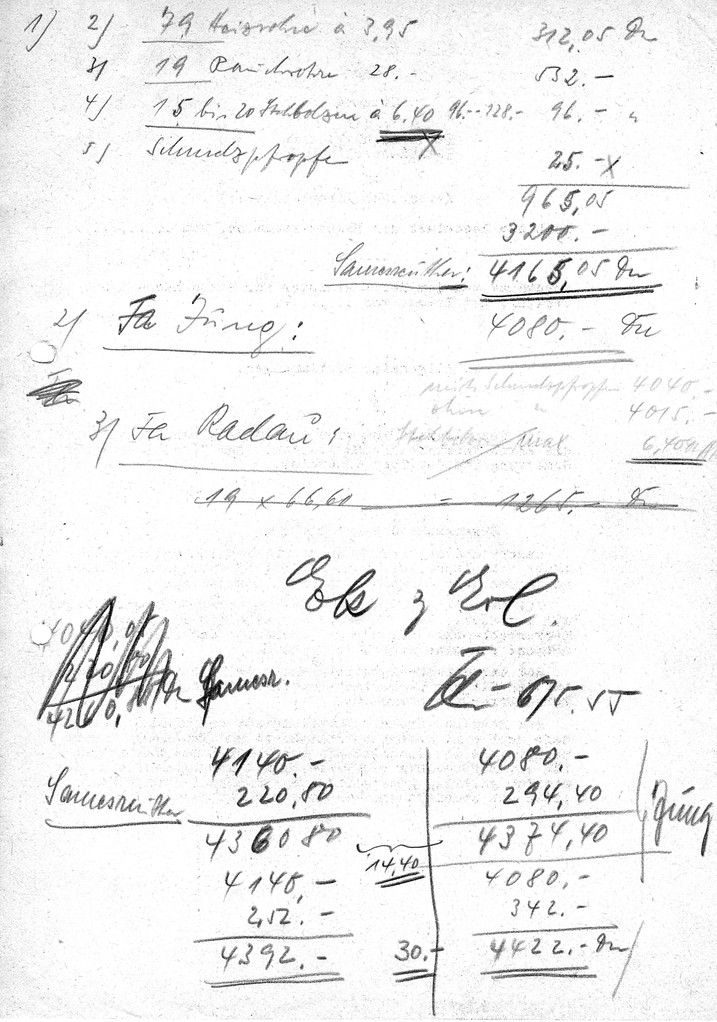 1) 2) 79 Heizrohre à 3,95 312,05 Dm
3) 19 Rauchrohre 28.- 532.-
4) 15 bis 20 Stehbolzen à 6,40 96.- 128.- 96.- "
5) Schmelzpfropfen 25.- x
x
965,05
3200.-
Samesreuther: 4165,05 Dm
2) Fa Jung: 4080.- Dm
mit Schmelzpfropfen 4040.-
ohne " 4015.-
3) Fa Radau: Stehbolzen 6,40
19 x 66,60 = 1265.- Dm
4260,
Samesr.
6/5.55
4140.- 4080.-
Samesreuther 220,80 294,40 Jung
4360 80 4374,40
14,40
4140,- 4080.-
252.- 342.-
4392.- 30.- 4422.- Dm